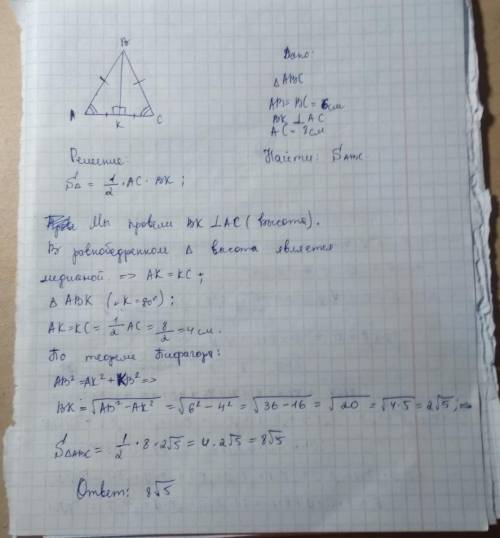 B
Дано:
△ ABC
A
K
C
AB = BC = 6см
BK ⊥ AC
AC = 8см
Решение:
Найти: S△ABC
S△ = 1/2 · AC · BK ;
Мы провели BK ⊥ AC ( высота ).
В ровнобедренном △ высота является
медианой => AK = KC ;
△ ABK ( ∠K = 90° ) ;
AK = KC = 1/2 AC = 8/2 = 4 см.
По теореме Пифагора:
AB² = AK² + KB² =>
BK = √(AB² - AK²) = √(6² - 4²) = √(36 - 16) = √20 = √(4·5) = 2√5 ; =>
S△ABC = 1/2 · 8 · 2√5 = 4 · 2√5 = 8√5 .
Ответ: 8√5